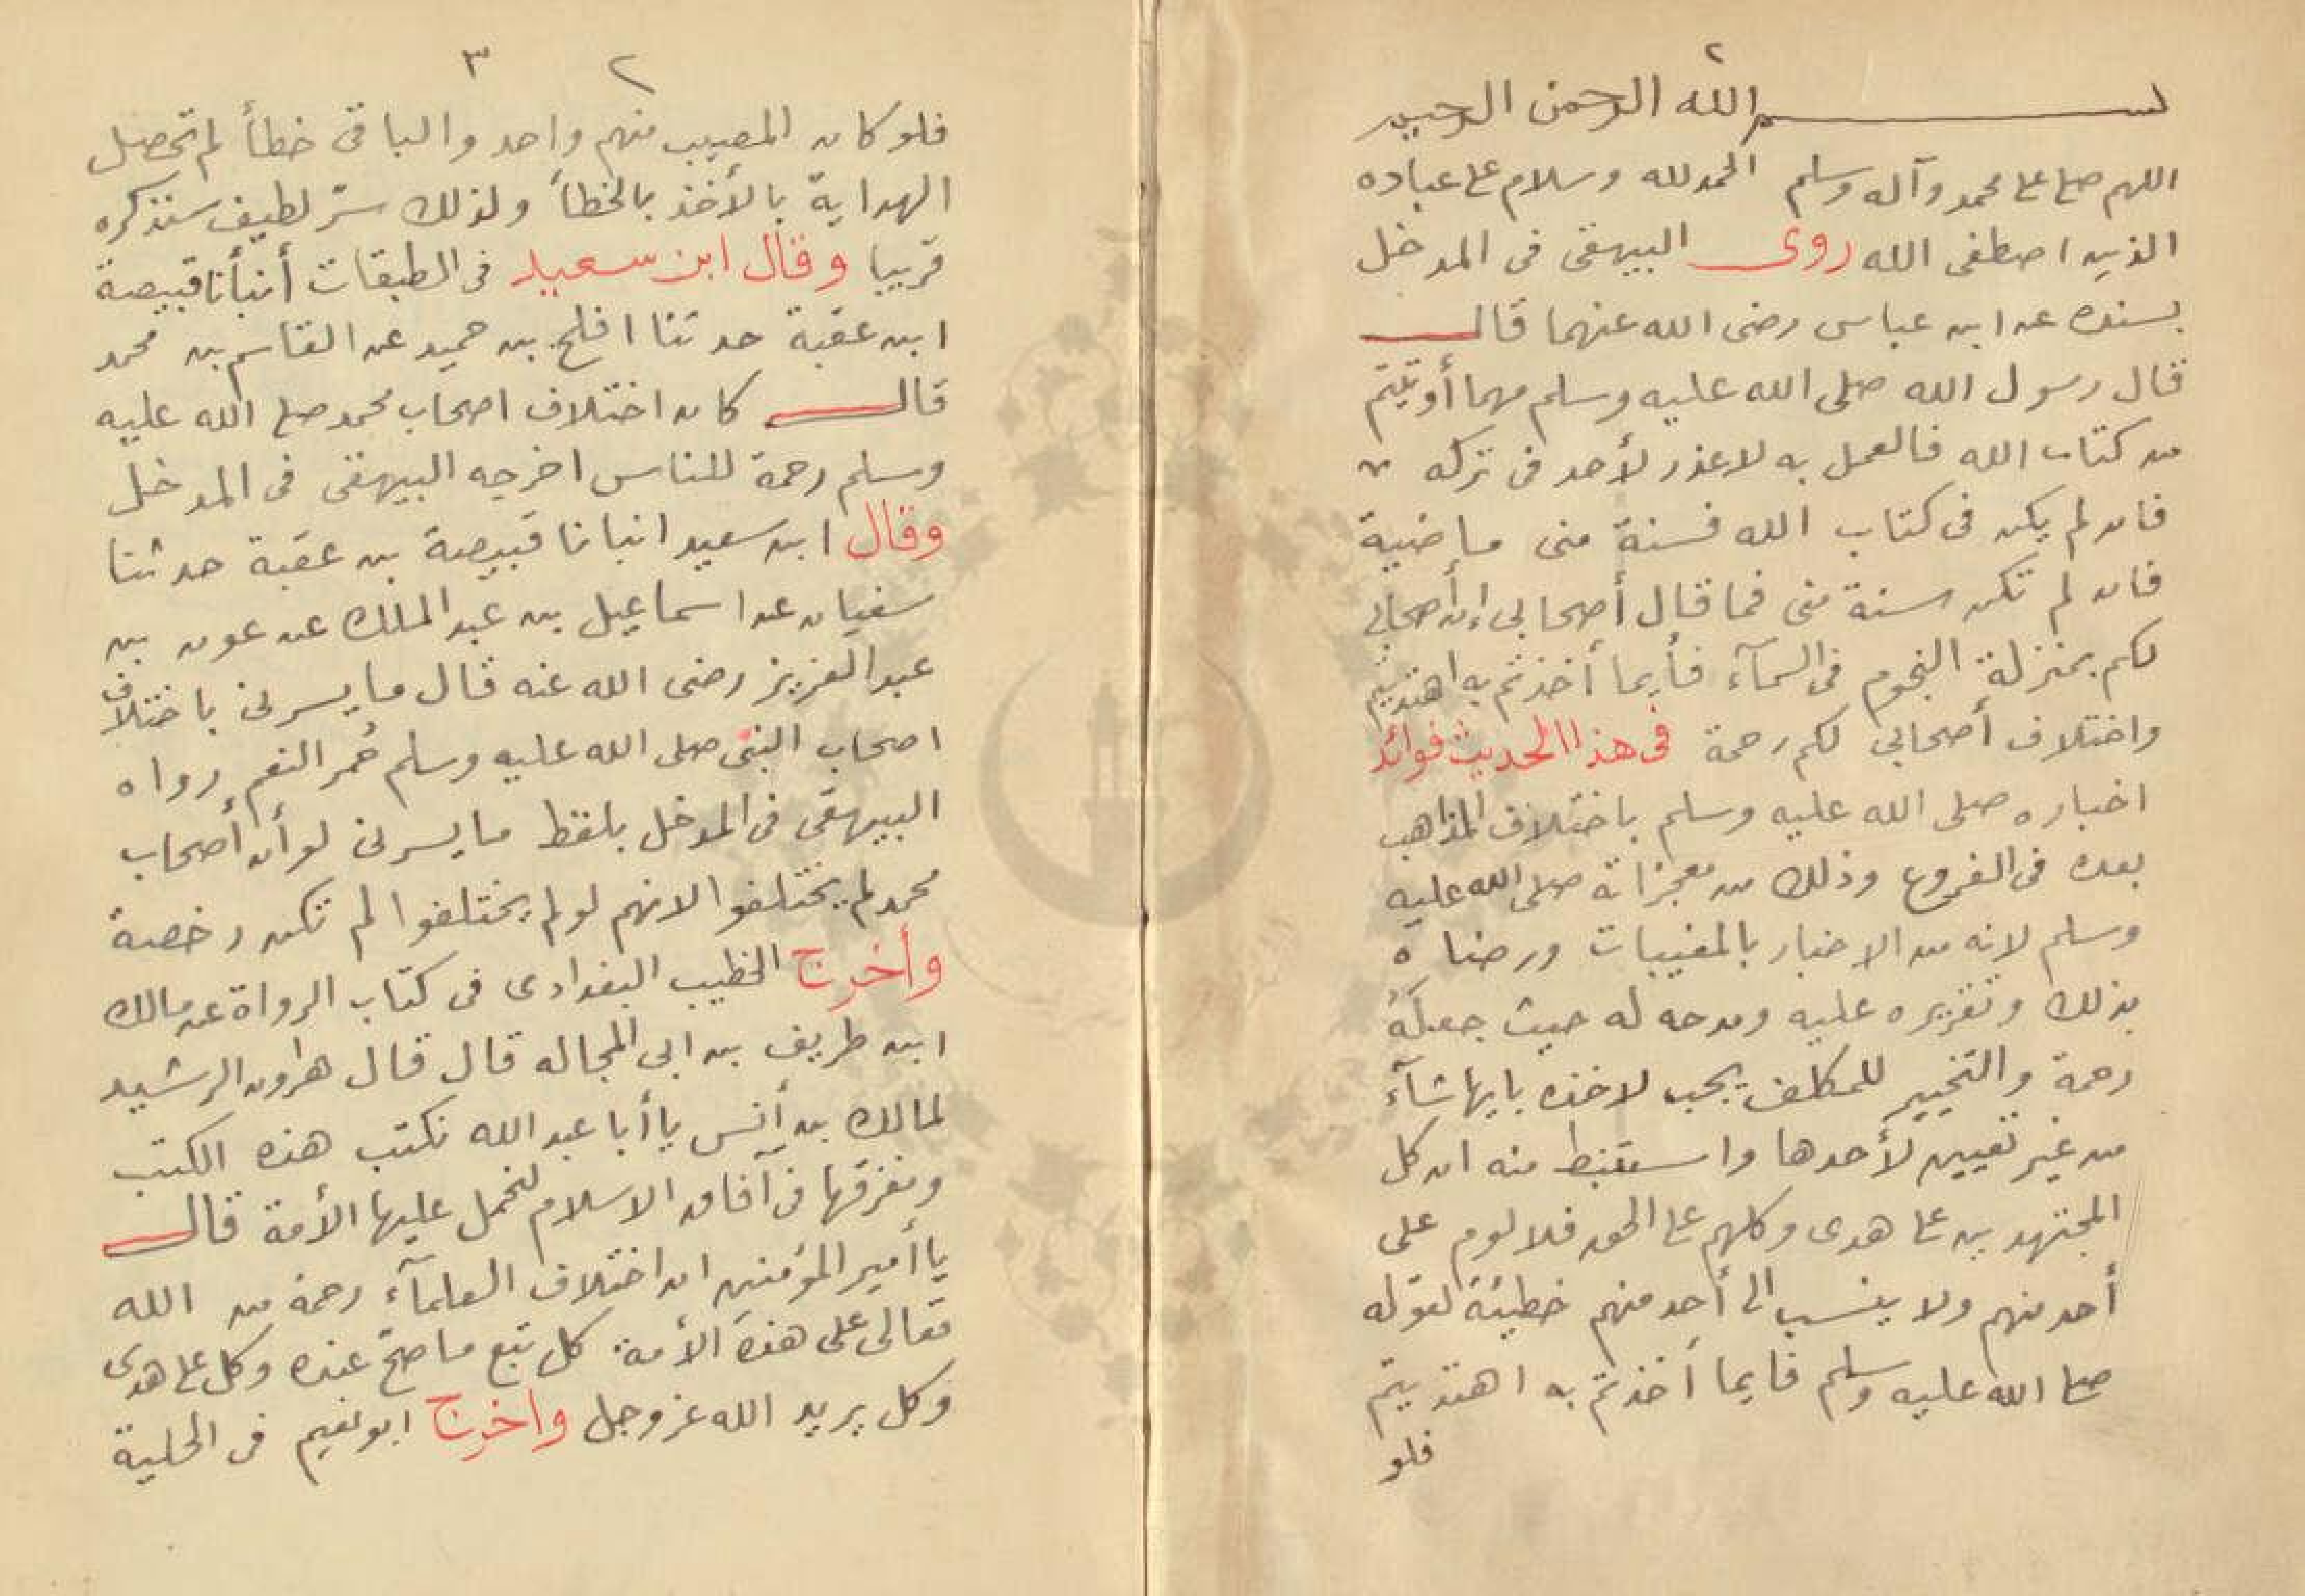 ٢
بسم الله الرحمن الرحيم
اللهم صل على محمد وآله وسلم الحمد لله وسلام على عباده
الذين اصطفى الله روى البيهقى فى المدخل
بسنده عن ابن عباس رضى الله عنهما قال
قال رسول الله صلى الله عليه وسلم مهما أوتيتم
من كتاب الله فالعمل به لا عذر لأحد فى تركه
فان لم يكن فى كتاب الله فسنة منى ماضية
فان لم تكن سنة منى فما قال أصحابى إن أصحابى
لكم بمنزلة النجوم فى السمآء فأيما أخذتم به اهتديتم
واختلاف أصحابى لكم رحمة فى هذا الحديث فوائد
اخباره صلى الله عليه وسلم باختلاف المذاهب
بعده فى الفروع وذلك من معجزاته صلى الله عليه
وسلم لانه من الاخبار بالمغيبات ورضاه
بذلك وتقريره عليه ومدحه له حيث جعله
رحمة والتخيير للمكلف يجب لاخذه بايها شآء
من غير تعيين لأحدها واستنبط منه ان كل
المجتهدين على هدى وكلهم على الحق فلا لوم على
أحد منهم ولا ينسب الى أحد منهم خطيئة لقوله
صلى الله عليه وسلم فايما أخذتم به اهتديتم
فلو
٢ ٣
فلو كان المصيب منهم واحد والباقى خطأ لم تحصل
الهداية بالأخذ بالخطأ ولذلك سرّ لطيف سنذكره
قريبا وقال ابن سعيد فى الطبقات أنبأنا قبيصة
ابن عقبة حدثنا افلح بن حميد عن القاسم بن محمد
قال كان اختلاف اصحاب محمد صلى الله عليه
وسلم رحمة للناس اخرجه البيهقى فى المدخل
وقال ابن سعيد انبانا قبيصة بن عقبة حدثنا
سفيان عن اسماعيل بن عبد الملك عن عون بن
عبد العزيز رضى الله عنه قال ما يسرنى باختلاف
اصحاب النبى صلى الله عليه وسلم حُمر النعم رواه
البيهقى فى المدخل بلفظ ما يسرنى لو أن أصحاب
محمد لم يختلفوا لانهم لو لم يختلفوا لم تكن رخصة
وأخرج الخطيب البغدادى فى كتاب الرواة عن مالك
ابن طريف بن ابى المجاله قال قال هارون الرشيد
لمالك بن أنس يا أبا عبد الله نكتب هذه الكتب
ونفرقها فى آفاق الاسلام لنحمل عليها الأمة قال
يا أمير المؤمنين ان اختلاف العلمآء رحمة من الله
تعالى على هذه الأمة كل تبع ما صحّ عنده وكل على هدى
وكل يريد الله عز وجل واخرج ابو نعيم فى الحلية